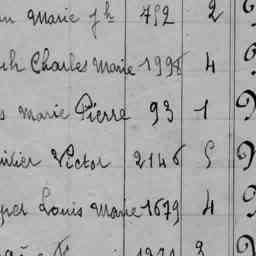 Marie jh 752 2
Charles Marie 1998 4
Marie Pierre 93 1
Victor 2146 5
Louis Marie 1679 4
3